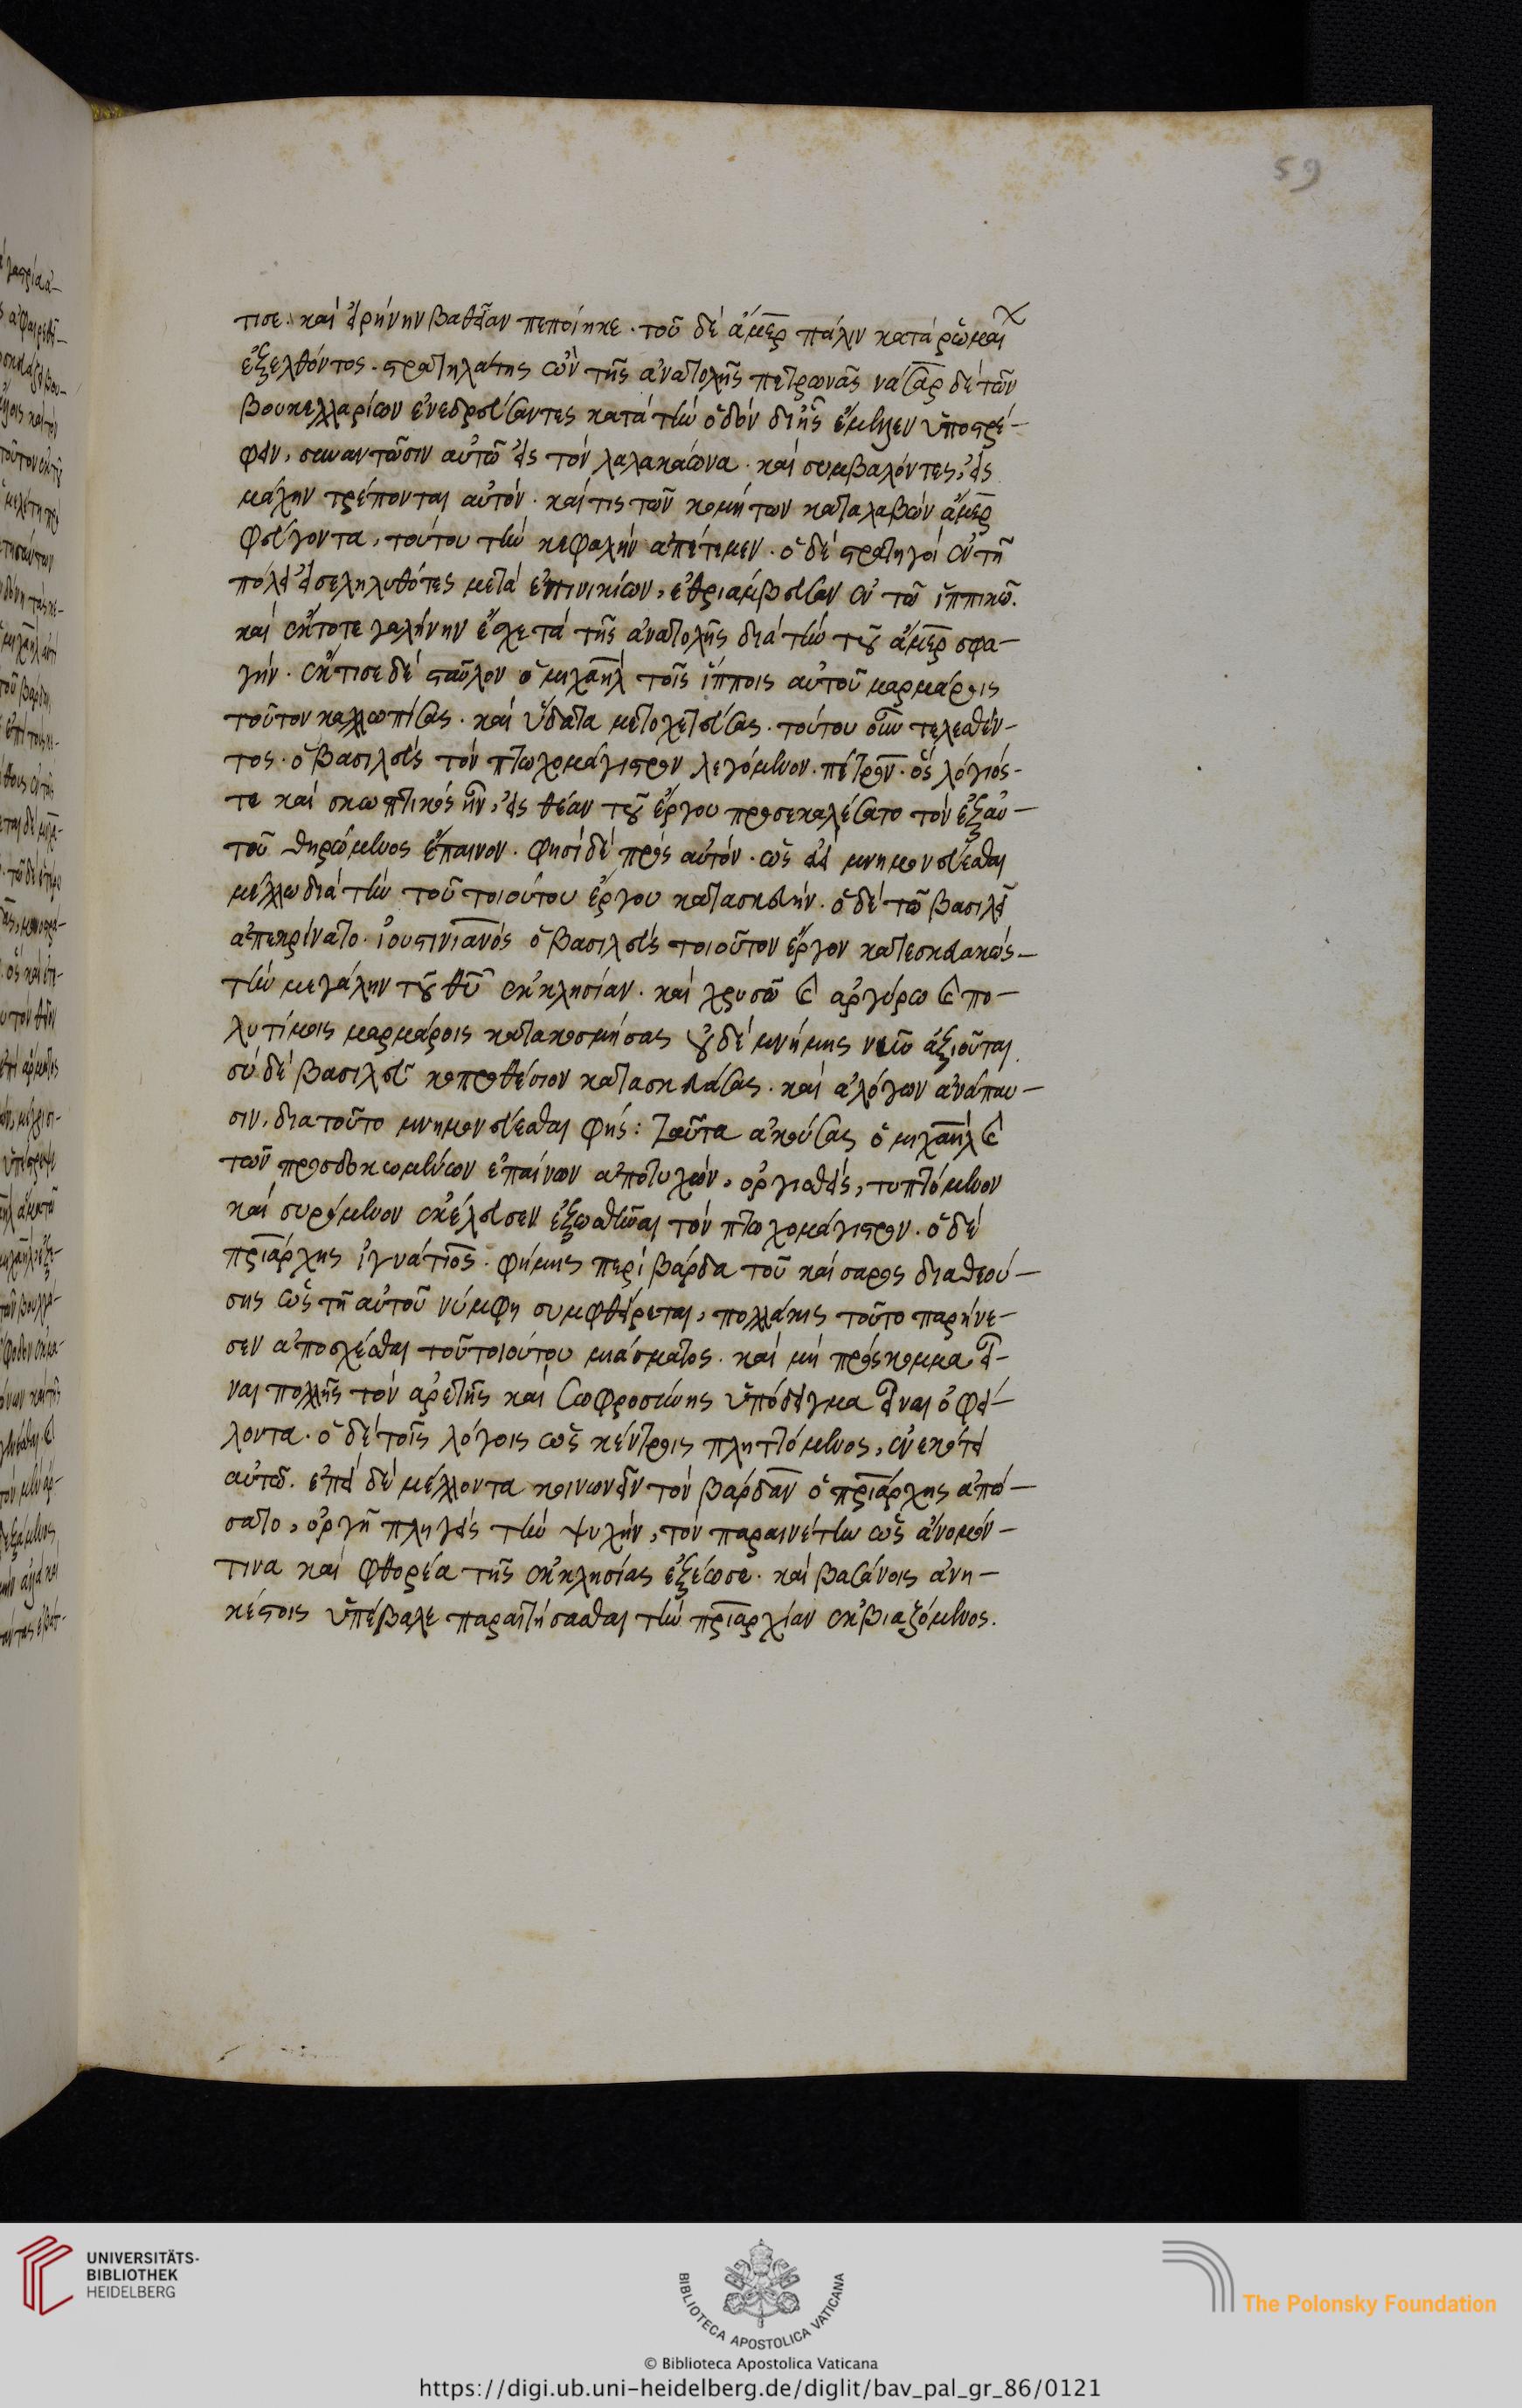 59
τισε. καὶ εἰρήνην βαθεῖαν πεποίηκε. τοῦ δὲ ἄμερ πάλιν κατὰ ῥωμαί
ἐξελθόντος. στρατηλάτης ὢν τῆς ἀνατολῆς πετρωνᾶς νάσαρ δὲ τῶν
βουκελλαρίων ἐνεδρεύσαντες κατὰ τὴν ὁδὸν δι' ἧς ἔμελλεν ὑποστρέ-
φειν, συναντῶσιν αὐτῶ εἰς τὸν λαλακάωνα. καὶ συμβαλόντες, εἰς
μάχην τρέπονται αὐτόν. καί τις τῶν κομήτων καταλαβὼν ἄμερ
φεύγοντα, τούτου τὴν κεφαλὴν ἀπέτεμεν. ὁ δὲ στρατηγοὶ ἐν τῆ
πόλει εἰσεληλυθότες μετὰ ἐπινικίων, ἐθριάμβευσαν ἐν τῶ ἱππικῶ.
καὶ ἔκτοτε γαλήνην ἔσχε τὰ τῆς ἀνατολῆς διὰ τὴν τοῦ ἄμερ σφα-
γήν. ἔκτισε δὲ σταῦλον ὁ μιχαὴλ τοῖς ἵπποις αὐτοῦ μαρμάροις
τοῦτον καλλωπίσας. καὶ ὕδατα μετοχετεύσας. τούτου οὖν τελεσθέν-
τος. ὁ βασιλεὺς τὸν πτωχομάγιστρον λεγόμενον. πέτρον. ὃς λόγιός-
τε καὶ σκωπτικὸς ἦν, εἰς θέαν τοῦ ἔργου προσεκαλέσατο τὸν ἐξ αὐ-
τοῦ θηρώμενος ἔπαινον. φησὶ δὲ πρὸς αὐτόν. ὡς ἀεὶ μνημονεύεσθαι
μέλλω διὰ τὴν τοῦ τοιούτου ἔργου κατασκευήν. ὁ δὲ τῶ βασιλεῖ
ἀπεκρίνατο. ἰουστινιανὸς ὁ βασιλεὺς τοιοῦτον ἔργον κατεσκευακώς-
τὴν μεγάλην τοῦ θῦ ἐκκλησίαν. καὶ χρυσῶ καὶ ἀργύρω καὶ πο-
λυτίμοις μαρμάροις κατακοσμήσας οὐδὲ μνήμης νῦν ἀξιοῦται.
σὺ δὲ βασιλεῦ κοπροθέσιον κατασκευάσας. καὶ ἀλόγων ἀνάπαυ-
σιν, διατοῦτο μνημονεύεσθαι φής: Ταῦτα ἀκούσας ὁ μιχαὴλ καὶ
τῶν προσδοκωμένων ἐπαίνων ἀποτυχών, ὀργισθείς, τυπτόμενον
καὶ συρόμενον ἐκέλευσεν ἐξωσθῆναι τὸν πτωχομάγιστρον. ὁ δὲ
πριάρχης ἰγνάτιος. φήμης περὶ βάρδα τοῦ καίσαρος διαθεού-
σης ὡς τῆ αὐτοῦ νύμφη συμφθείρεται, πολλάκις τοῦτο παρήνε-
σεν ἀποσχέσθαι τοῦ τοιούτου μιάσματος. καὶ μὴ πρόσκομμα εἶ-
ναι πολλῆς τὸν ἀρετῆς καὶ σωφροσύνης ὑπόδειγμα εἶναι ὀφεί-
λοντα. ὁ δὲ τοῖς λόγοις ὡς κέντροις πληττόμενος, ἐνεκότει
αὐτῶ. ἐπεὶ δὲ μέλλοντα κοινωνεῖν τὸν βάρδαν ὁ πριάρχης ἀπώ-
σατο, ὀργῆ πληγεὶς τὴν ψυχήν, τὸν παραινέτην ὡς ἄνομόν-
τινα καὶ φθορέα τῆς ἐκκλησίας ἐξέωσε. καὶ βασάνοις ἀνη-
κέστοις ὑπέβαλε παραιτήσασθαι τὴν πριαρχίαν ἐκβιαζόμενος.
UNIVERSITÄTS-
BIBLIOTHEK
HEIDELBERG
BIBLIOTECA APOSTOLICA VATICANA
The Polonsky Foundation
© Biblioteca Apostolica Vaticana
https://digi.ub.uni-heidelberg.de/diglit/bav_pal_gr_86/0121